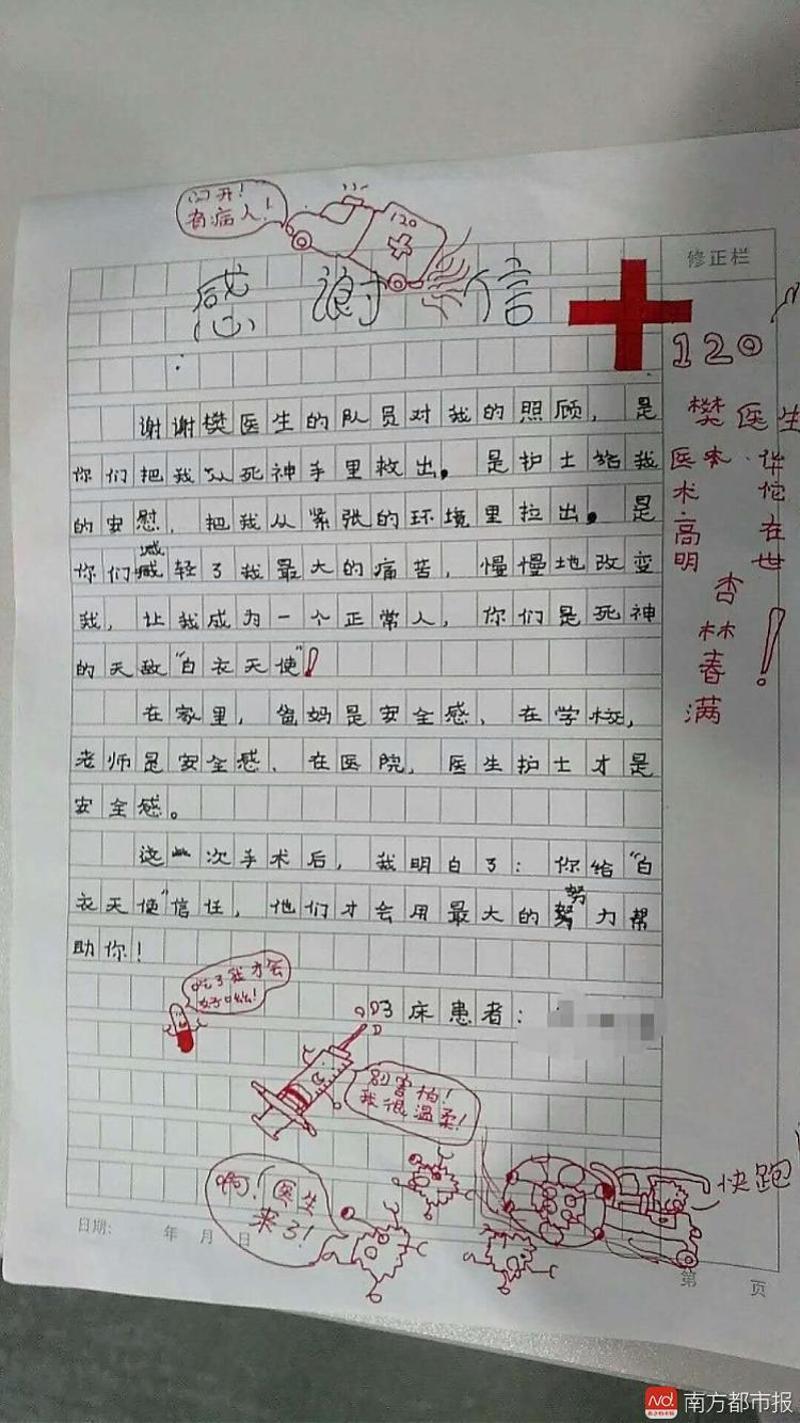 闪开！
有病人！
120
感谢信
修正栏
120
谢谢樊医生的队员对我的照顾，是
你们把我从死神手里救出。是护士给我
的安慰，把我从紧张的环境里拉出。是
你们减轻了我最大的痛苦，慢慢地改变
我，让我成为一个正常人，你们是死神
的天敌“白衣天使”！
在家里，爸妈是安全感、在学校，
老师是安全感、在医院，医生护士才是
安全感。
这次手术后，我明白了：你给“白
衣天使”信任，他们才会用最大的努力帮
助你！
床患者：
樊医生
医术高明
华佗在世
杏林春满！
吃了我才会
好哦！
别害怕！
我很温柔！
啊！医生
来了！
快跑
日期： 年 月 日
第 页
南方都市报